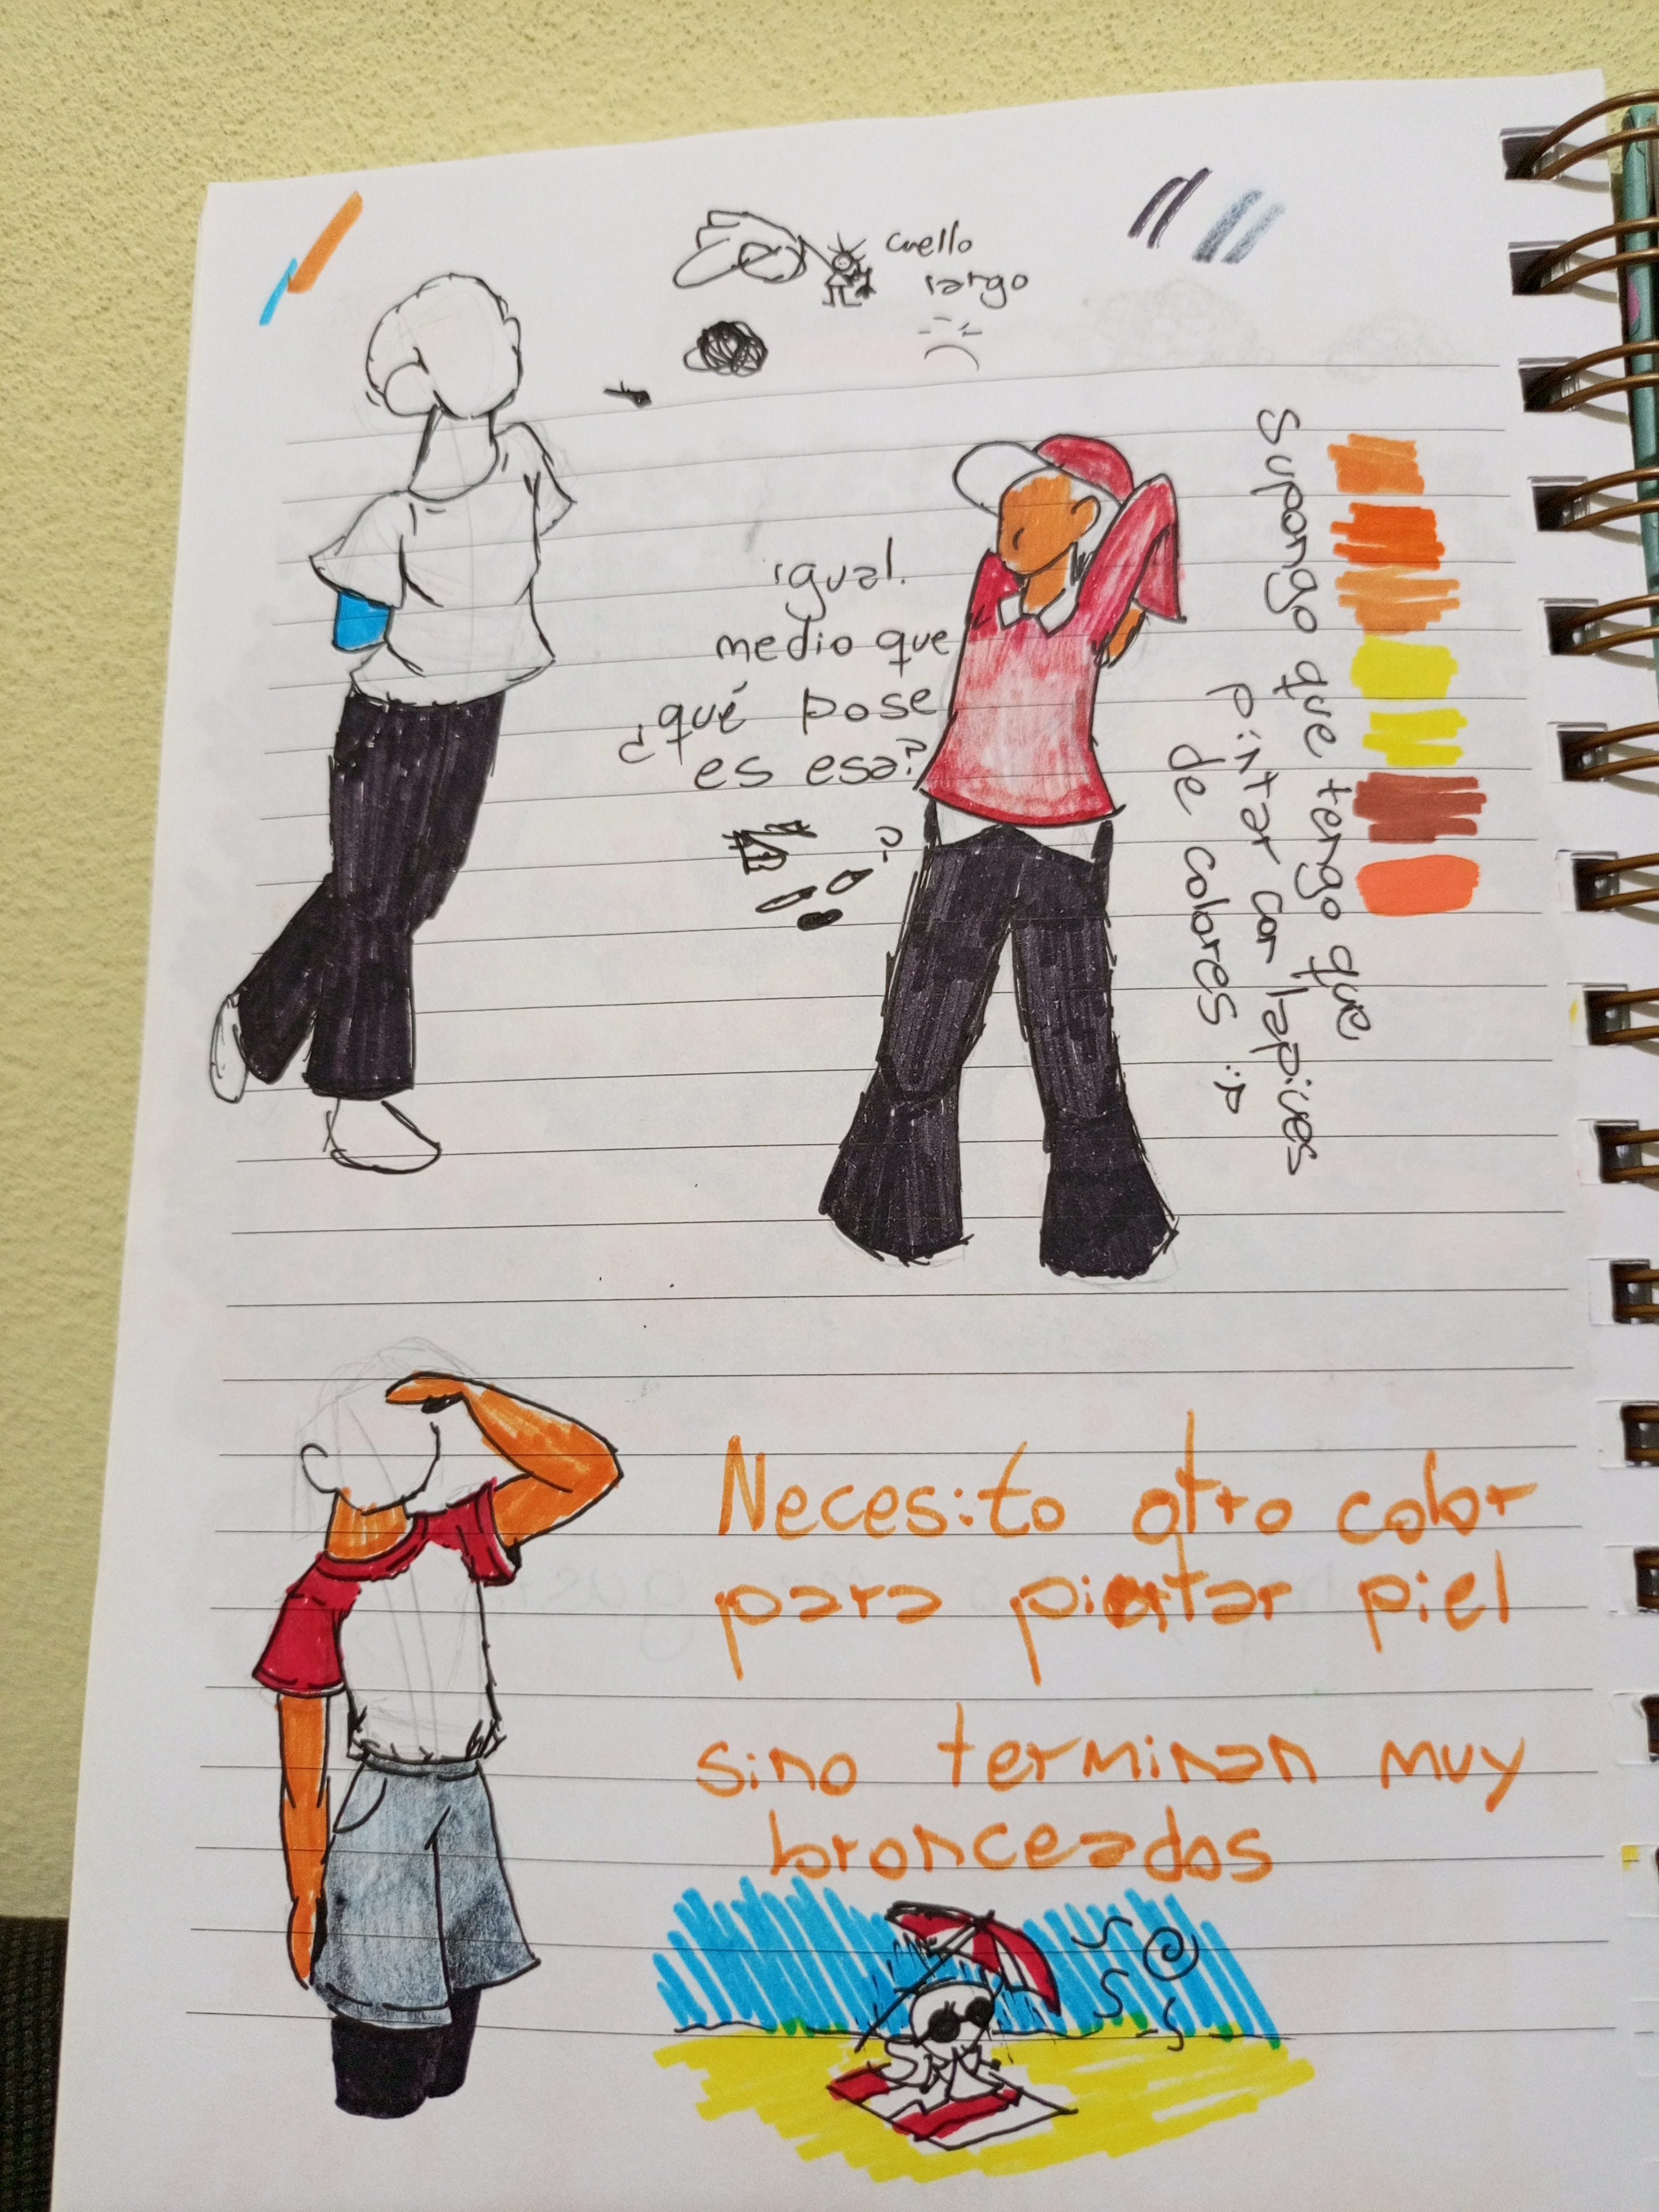 cuello
largo
igual.
medio que
¿qué pose
es esa?
Supongo que tengo que
pintar con lapices
de colores :p
Necesito otro color
para pintar piel
sino terminan muy
bronceados